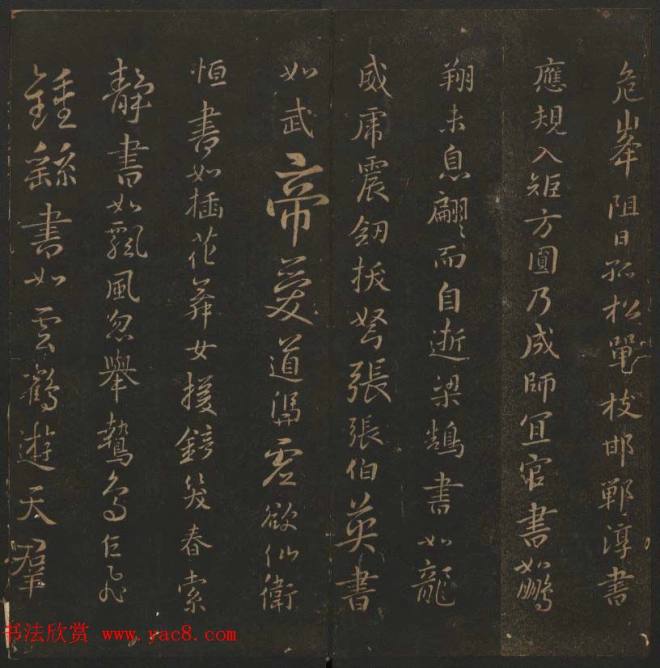 危峯阻日孤松單枝邯鄲淳書
應規入矩方圓乃成師宜官書如鵬
翔未息翩々而自逝梁鵠書如龍
威虎震劒拔弩張張伯英書
如武帝愛道憑虛欲仙衛
恒書如插花舞女援鏡笑春索
靜書如飄風忽舉鷙鳥乍飛
鍾繇書如雲鶴遊天羣
书法欣赏 www.yac8.com